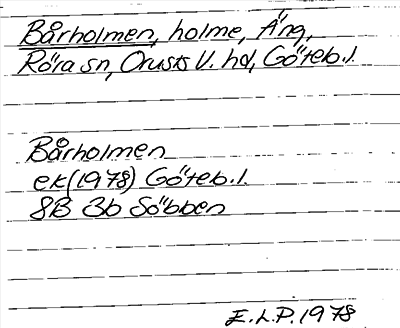 Bårholmen, holme, Äng,
Röra sn, Orusts V. hd, Göteb. l.
Bårholmen
ek (1978) Göteb. l.
8B 3b Söbben
E.L.P. 1978